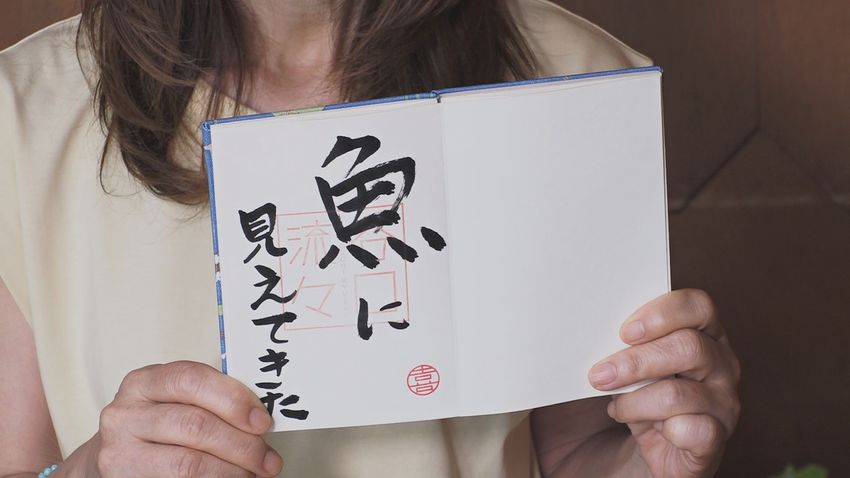 魚に
見えてきた
各口
流々
喜